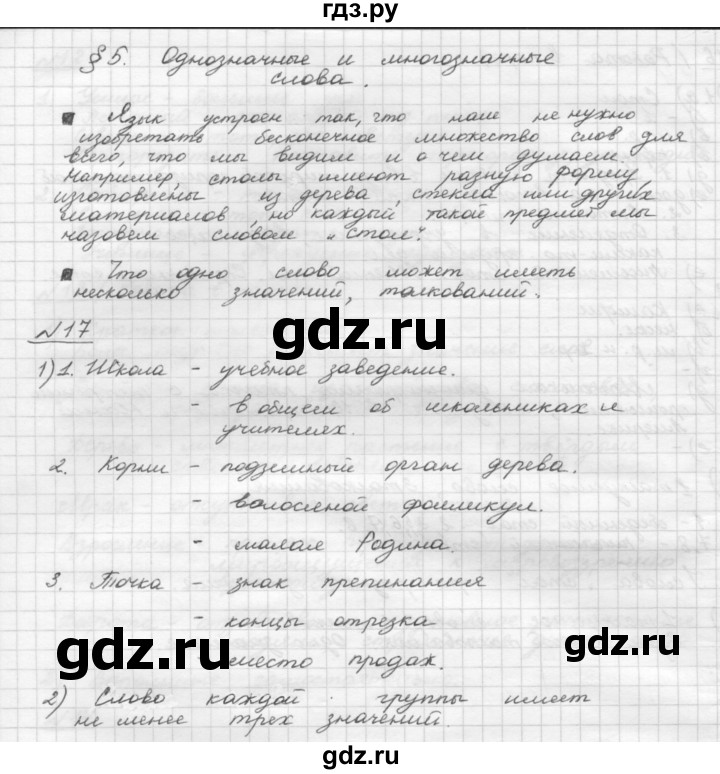 гдз.ру
§ 5. Однозначные и многозначные
слова.
Язык устроен так, что нам не нужно
изобретать бесконечное множество слов для
всего, что мы видим и о чем думаем.
Например, столы имеют разную форму,
изготовлены из дерева, стекла или других
материалов, но каждый такой предмет мы
назовем словом „стол“.
Что одно слово может иметь
несколько значений, толкований.
№17
1) 1. Школа - учебное заведение.
- в общем об школьниках и
учителях.
2. Корни - подземный орган дерева.
- волосяной фолликул.
- малая Родина.
3. Точка - знак препинания
- концы отрезка
место продаж.
gdz.ru gdz.ru
2) Слово каждой группы имеет
не менее трех значений.
gdz.ru